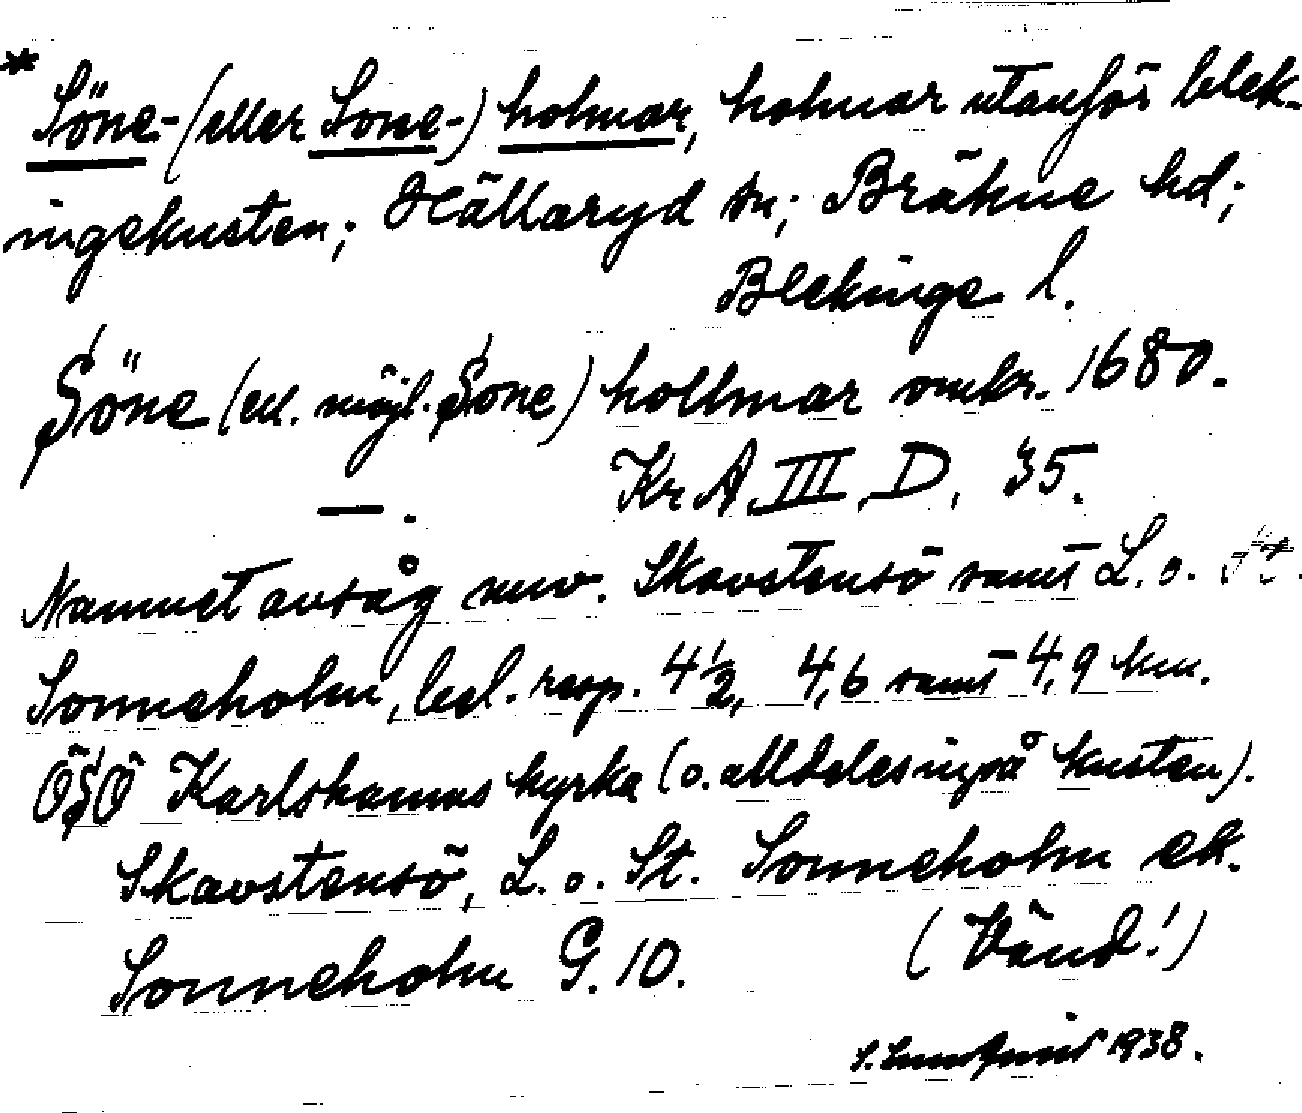 * Söne- (eller Sone-) holmar, holmar utanför blek-
ingekusten; Hällaryd sn; Bräkne hd;
Blekinge l.
Söne (ell. möjl. Sone) hollmar omkr. 1680.
Kr. A. III. D. 35.
— .
Namnet avsåg nuv. Skavstensö samt L. o. St.
Sonneholm, bel. resp. 4½, 4,6 samt 4,9 km.
ÖSÖ Karlshamns kyrka (o. alldeles inpå kusten).
Skavstensö, L. o. St. Sonneholm ek.
Sonneholm G. 10. (Vänd!)
S. 1938.